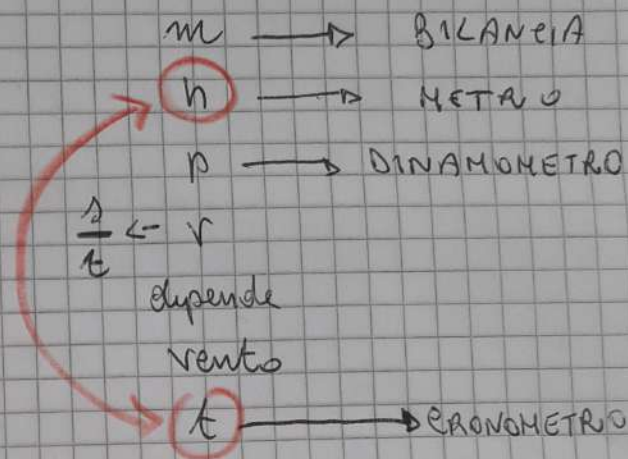 m → BILANCIA
h → METRO
p → DINAMOMETRO
s/t ← v
dipende
vento
t → CRONOMETRO